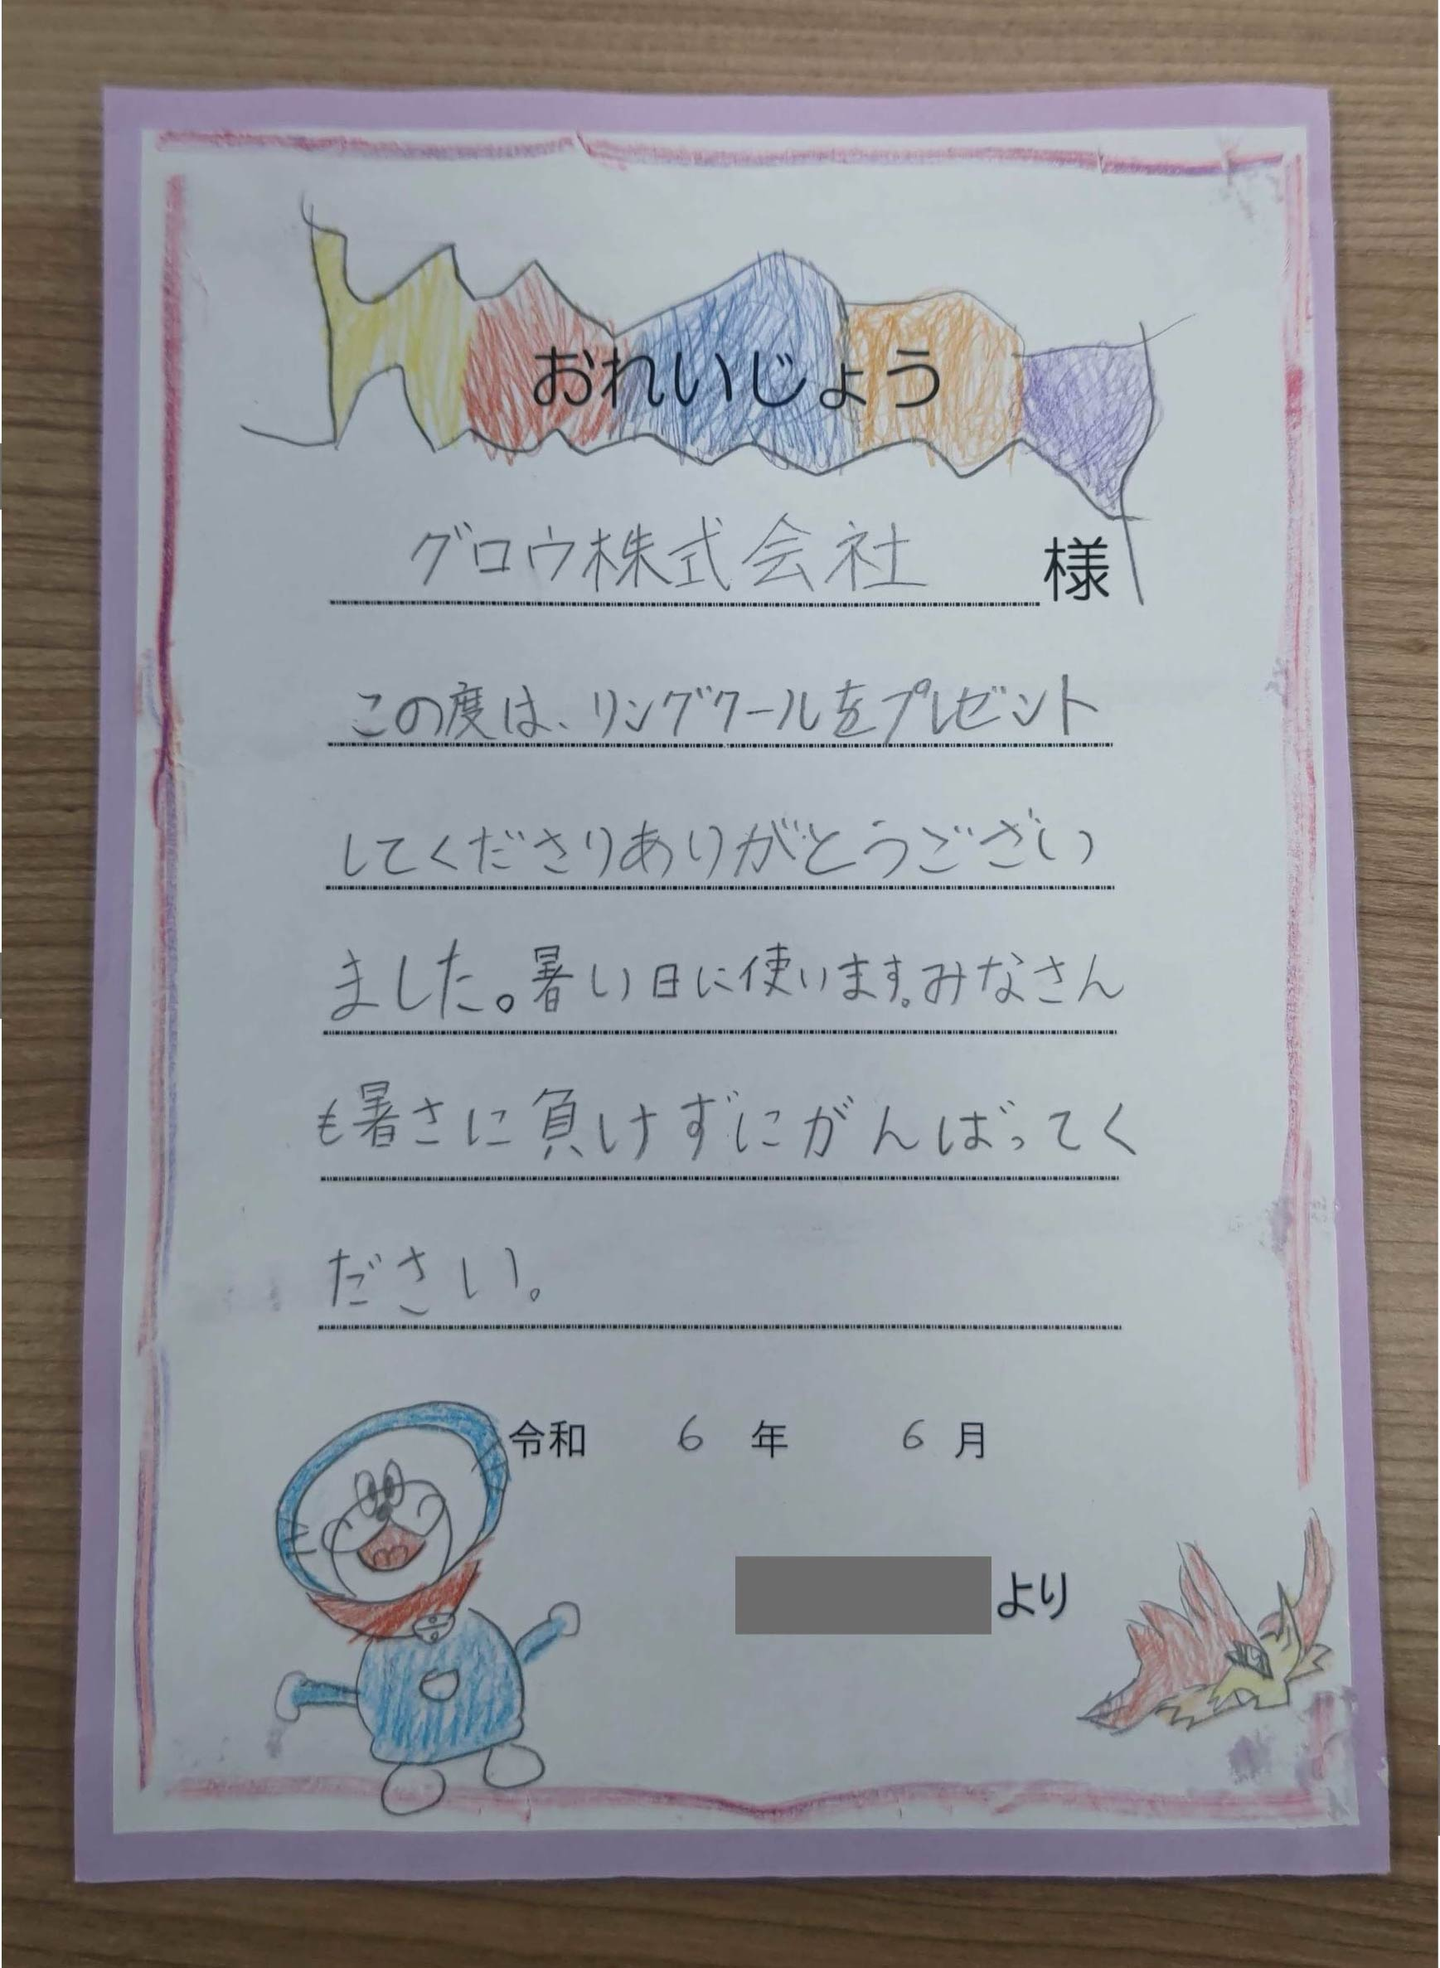 おれいじょう
グロウ株式会社 様
この度は、リングクールをプレゼント
してくださりありがとうござい
ました。暑い日に使います。みなさん
も暑さに負けずにがんばってく
ださい。
令和 6 年 6 月
より